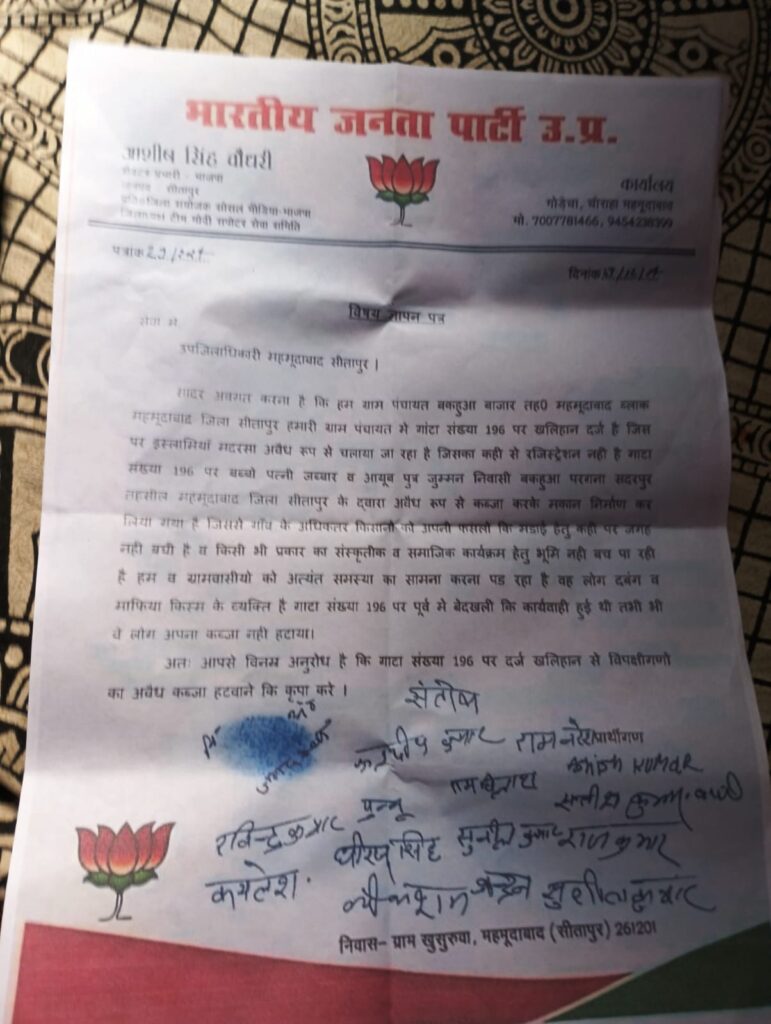 भारतीय जनता पार्टी उ.प्र.
आशीष सिंह चौधरी
सेक्टर प्रभारी - भाजपा
जनपद - सीतापुर
जिला संयोजक सोसल मीडिया-भाजपा
जिलाध्यक्ष टीम मोदी सपोटर सेवा समिति
कार्यालय
गोड़ैचा, चौराहा महमूदाबाद
मो. 7007781466, 9454238399
पत्रांक
दिनांक
विषय ज्ञापन पत्र
सेवा मे
उपजिलाधिकारी महमूदाबाद सीतापुर ।
सादर अवगत करना है कि हम ग्राम पंचायत बकहुआ बाजार तह0 महमूदाबाद ब्लाक
महमूदाबाद जिला सीतापुर हमारी ग्राम पंचायत मे गांटा संख्या 196 पर खलिहान दर्ज है जिस
पर इस्लामियाँ मदरसा अवैध रूप से चलाया जा रहा है जिसका कही से रजिस्ट्रेशन नही है गाटा
संख्या 196 पर बच्चो पत्नी जब्बार व आयूब पुत्र जुम्मन निवासी बकहुआ परगना सदरपुर
तहसील महमूदाबाद जिला सीतापुर के द्वारा अवैध रूप से कब्जा करके मकान निर्माण कर
लिया गया है जिससे गाँव के अधिकतर किसानो को अपनी फसलो कि मडाई हेतु कही पर जगह
नही बची है व किसी भी प्रकार का संस्कृतीक व समाजिक कार्यक्रम हेतु भूमि नही बच पा रही
है हम व ग्रामवासीयो को अत्यंत समस्या का सामना करना पड रहा है वह लोग दबंग व
माफिया किस्म के व्यक्ति है गाटा संख्या 196 पर पूर्व मे बेदखली कि कार्यवाही हुई थी तभी भी
वे लोग अपना कब्जा नही हटाया।
अतः आपसे विनम्र अनुरोध है कि गाटा संख्या 196 पर दर्ज खलिहान से विपक्षीगणो
का अवैध कब्जा हटवाने कि कृपा करे ।
संतोष
कुमार राम नरेश प्रार्थीगण
Ashish KUMAR
पुन्नू
रविन्द्र कुमार
सिंह सुनील कुमार राज कुमार
कमलेश.
सुशील कुमार
निवास- ग्राम खुसुरुवा, महमूदाबाद (सीतापुर) 261201